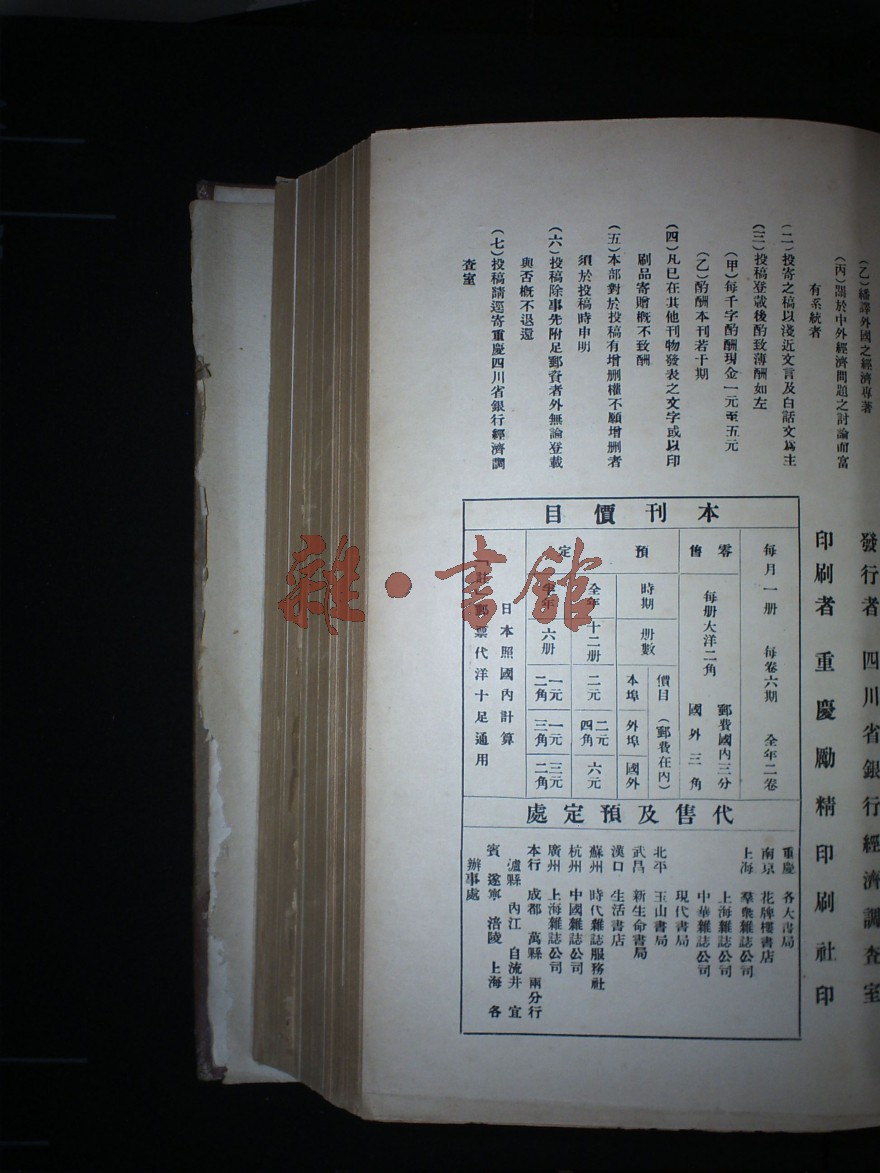 (乙)繙譯外國之經濟專著
(丙)關於中外經濟問題之討論而富
有系統者
(二)投寄之稿以淺近文言及白話文爲主
(三)投稿登載後酌致薄酬如左
(甲)每千字酌酬現金一元至五元
(乙)酌酬本刊若干期
(四)凡已在其他刊物發表之文字或以印
刷品寄贈概不致酬
(五)本部對於投稿有增删權不願增删者
須於投稿時申明
(六)投稿除事先附足郵資者外無論登載
與否概不退還
(七)投稿請逕寄重慶四川省銀行經濟調
查室
發行者 四川省銀行經濟調查室
印刷者 重慶勵精印刷社印
本刊價目
每月一册 每卷六期 全年二卷
零售 每册大洋二角 郵費國內三分 國外三角
預定
時期 册數 價目(郵費在內) 本埠 外埠 國外
全年 十二册 二元 二元四角 六元
半年 六册 一元二角 一元三角 三元二角
日本照國內計算
郵票代洋十足通用
代售及預定處
重慶 各大書局
南京 花牌樓書店
上海 羣衆雜誌公司
上海雜誌公司
中華雜誌公司
現代書局
北平 玉山書局
武昌 新生命書局
漢口 生活書店
蘇州 時代雜誌服務社
杭州 中國雜誌公司
廣州 上海雜誌公司
本行 成都 萬縣 兩分行
瀘縣 內江 自流井 宜
賓 遂寧 涪陵 上海 各
辦事處
雜·書館